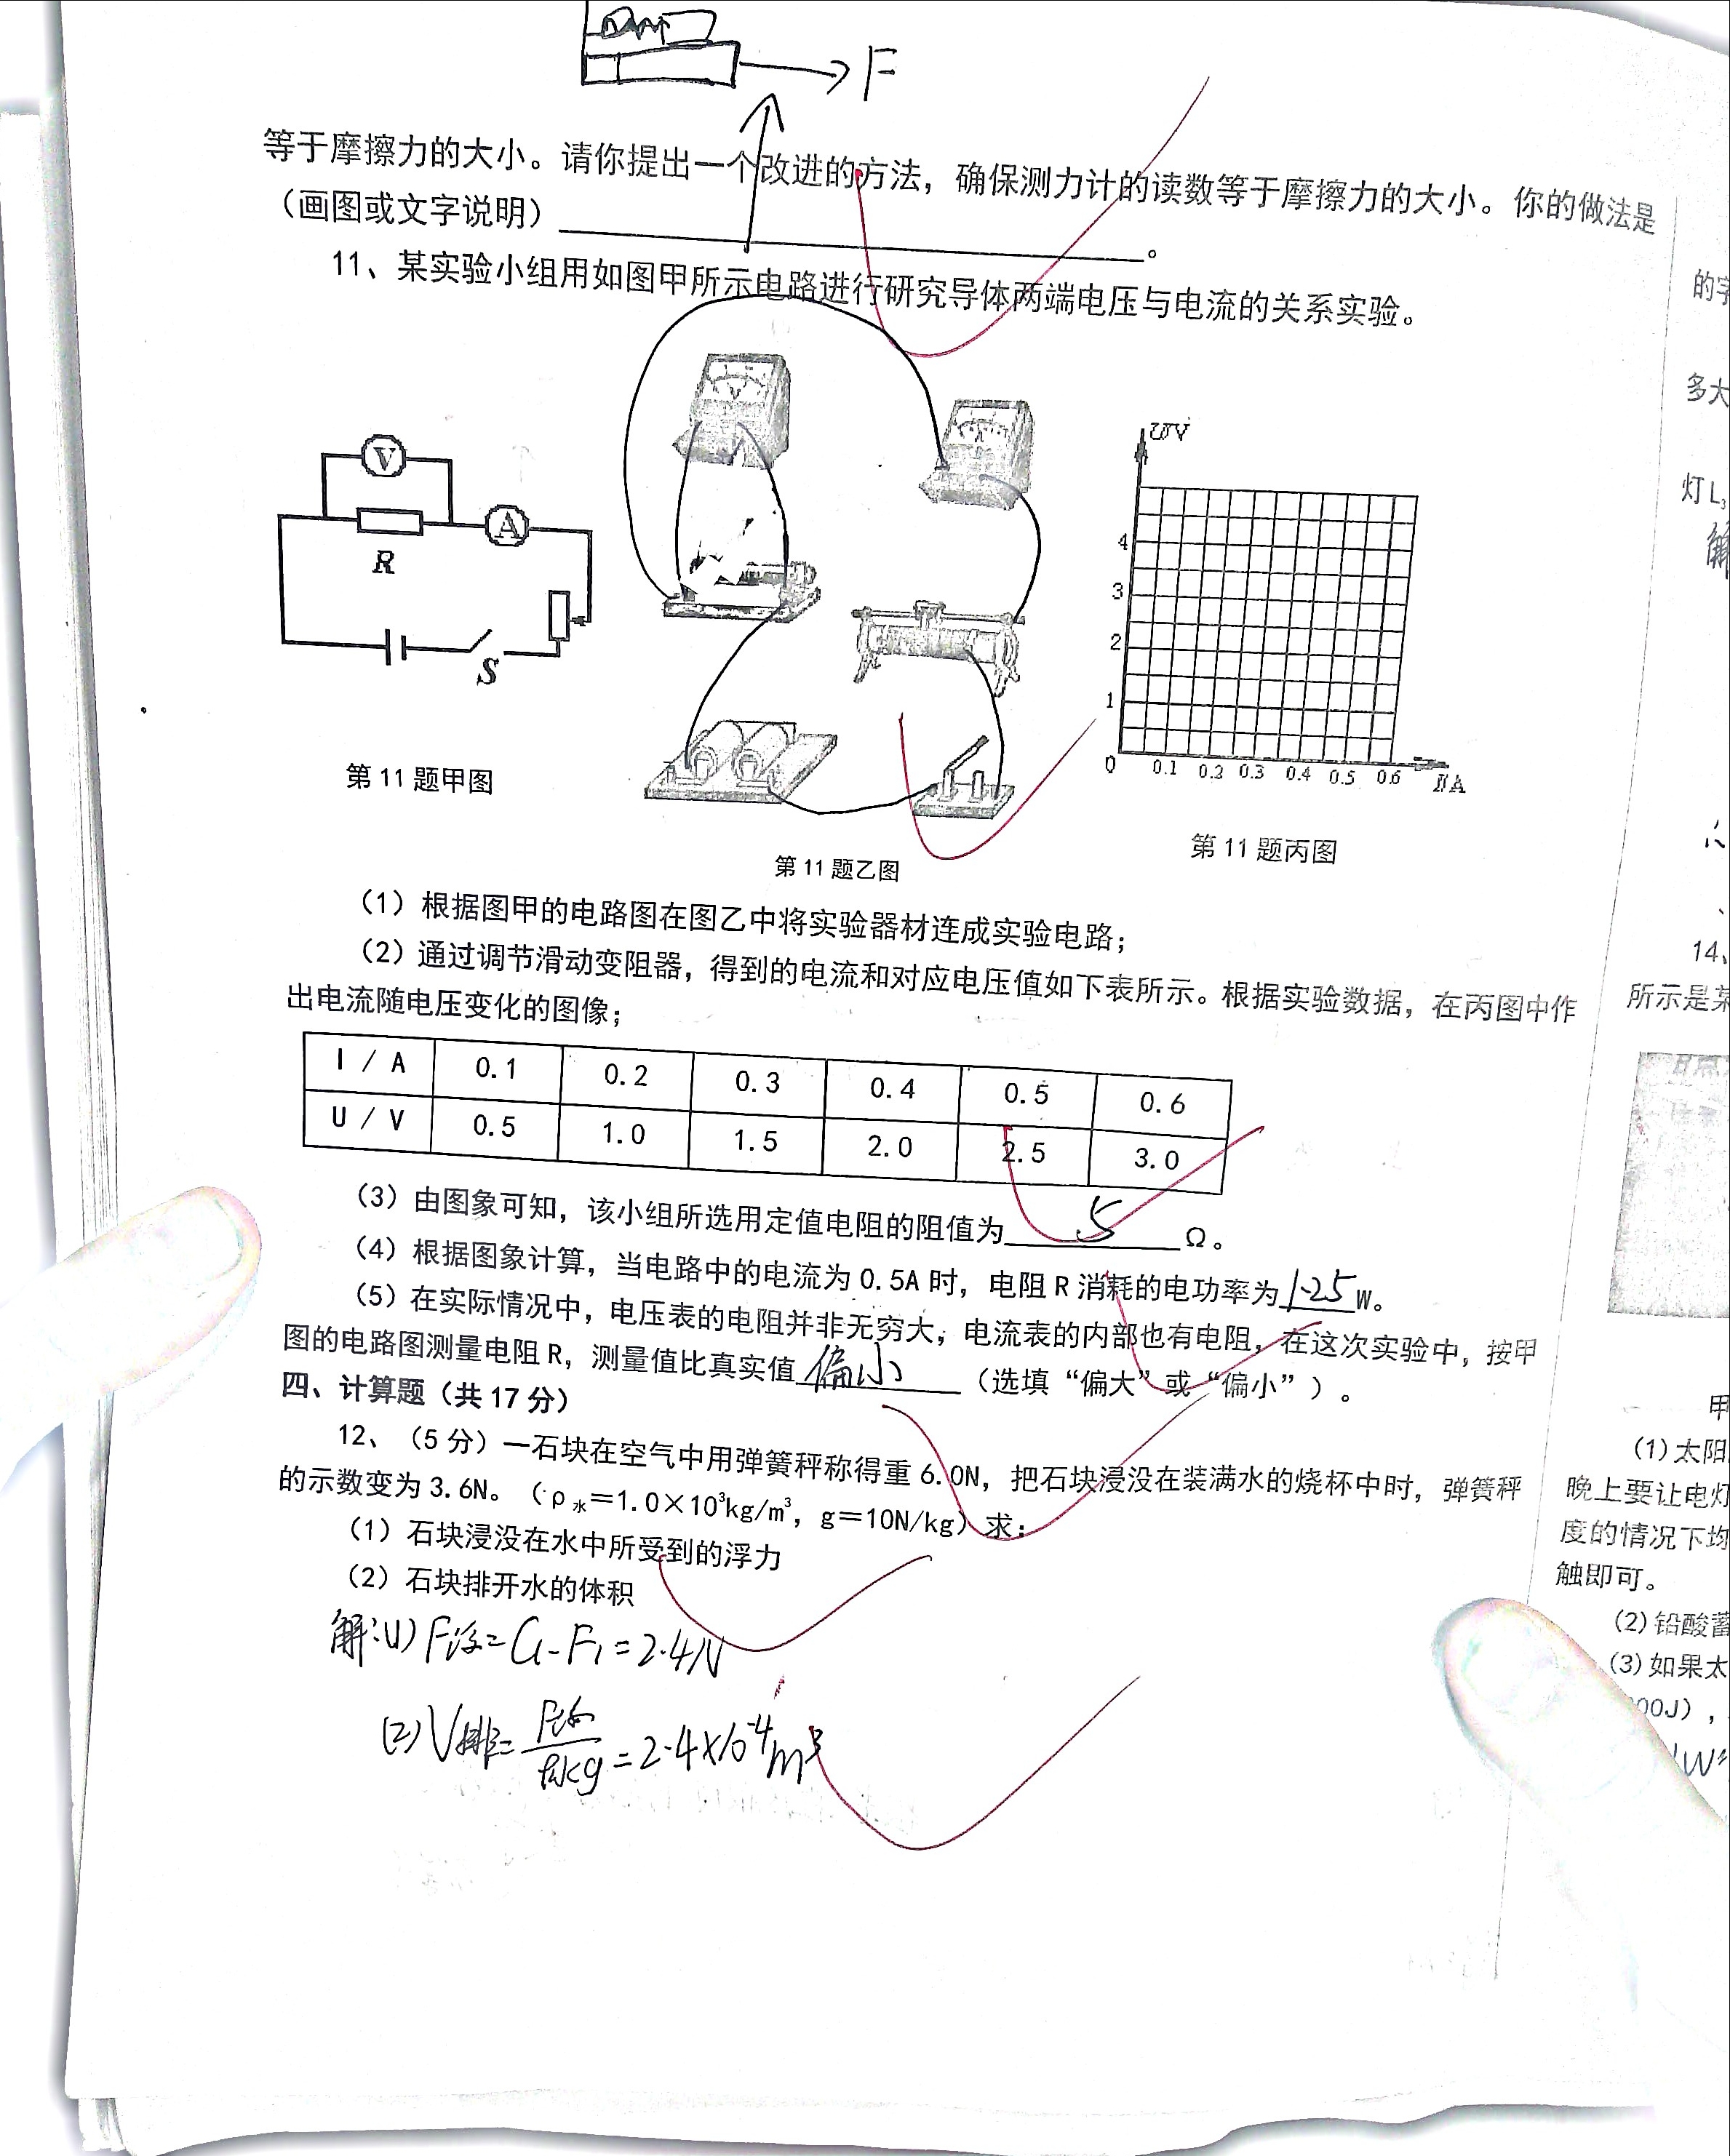 F
等于摩擦力的大小。请你提出一个改进的方法，确保测力计的读数等于摩擦力的大小。你的做法是
（画图或文字说明）________________。
11、某实验小组用如图甲所示电路进行研究导体两端电压与电流的关系实验。
V
R
A
S
第11题甲图
V
A
第11题乙图
U/V
4
3
2
1
0
0.1 0.2 0.3 0.4 0.5 0.6
I/A
第11题丙图
（1）根据图甲的电路图在图乙中将实验器材连成实验电路；
（2）通过调节滑动变阻器，得到的电流和对应电压值如下表所示。根据实验数据，在丙图中作
出电流随电压变化的图像；
I / A 0.1 0.2 0.3 0.4 0.5 0.6
U / V 0.5 1.0 1.5 2.0 2.5 3.0
（3）由图象可知，该小组所选用定值电阻的阻值为 5 Ω。
（4）根据图象计算，当电路中的电流为0.5A时，电阻R消耗的电功率为1.25W。
（5）在实际情况中，电压表的电阻并非无穷大，电流表的内部也有电阻，在这次实验中，按甲
图的电路图测量电阻R，测量值比真实值 偏小 （选填“偏大”或“偏小”）。
四、计算题（共17分）
12、（5分）一石块在空气中用弹簧秤称得重6.0N，把石块浸没在装满水的烧杯中时，弹簧秤
的示数变为3.6N。（ρ水＝1.0×10³kg/m³，g＝10N/kg）求：
（1）石块浸没在水中所受到的浮力
（2）石块排开水的体积
解:(1) F浮=G-F1=2.4N
(2)V排=F浮/ρ水g=2.4×10⁻⁴m³
的字
多大
灯L₃
解
14、
所示是某
甲
(1)太阳
晚上要让电灯
度的情况下均
触即可。
(2)铅酸蓄
(3)如果太
000J），